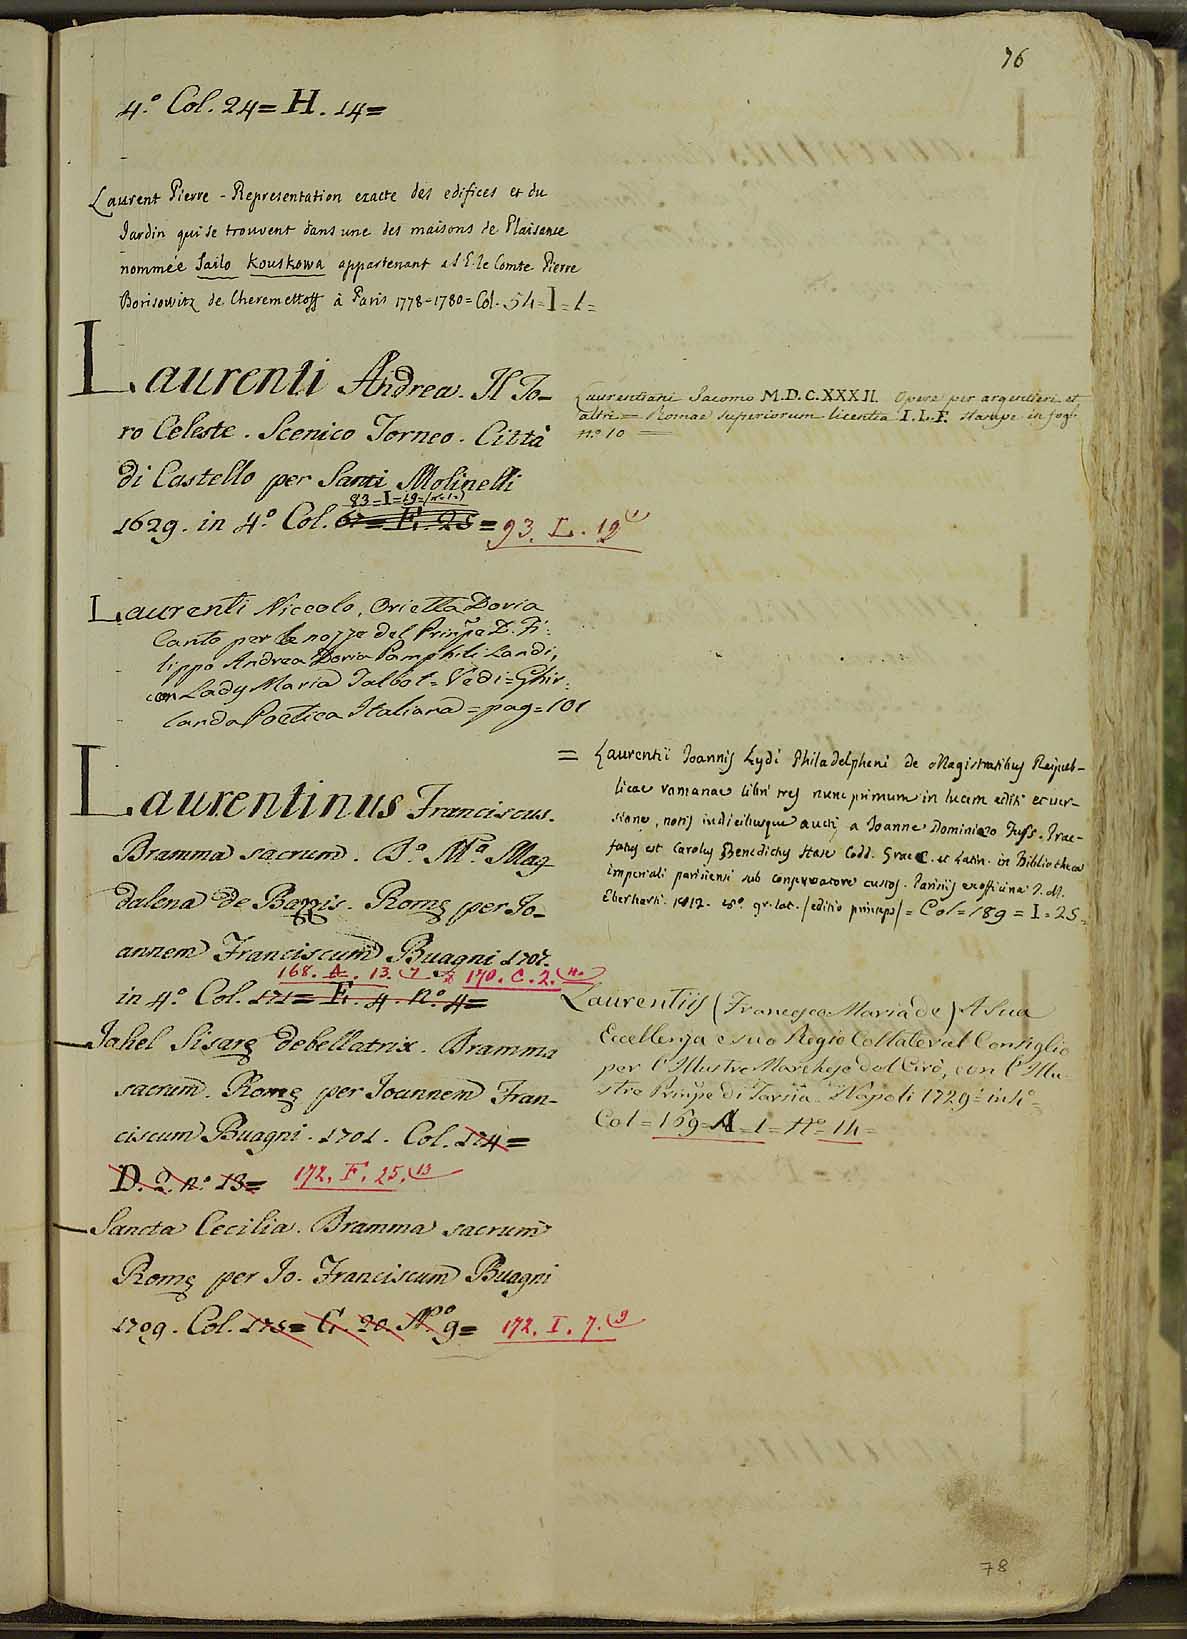 76
4.º Col. 24 = H. 14 =
Laurent Pierre - Representation exacte des edifices et du
Jardin qui se trouvent dans une des maisons de Plaisance
nommée Sailo Kouskowa appartenant a S.E. le Comte Pierre
Borisowitz de Cheremettoff à Paris 1778-1780 = Col. 54 = I = 1 =
Laurenti Andrea. Il To-
ro Celeste. Scenico Torneo. Città
di Castello per Santi Molinelli
83 = I = 19 = (n. 1.)
1629. in 4.º Col. 67 = F. 25 = 93. L. 19
Laurenti Niccolo, Orietta Doria
Canto per le nozze del Prinpe D. Fi-
lippo Andrea Doria Pamphili Landi,
con Lady Maria Talbot = Vedi = Ghir-
landa Poetica Italiana = pag = 101
Laurentinus Franciscus.
Dramma sacrum. B.a M.a Mag
dalena de Pazzis. Romę per Jo-
annem Franciscum Buagni 1707.
168. A. 13. 7 170. C. 2. 11.
in 4.º Col. 171 = F. 4. nº. 4 =
Jahel Sisarę debellatrix. Dramma
sacrum. Romę per Joannem Fran-
ciscum Buagni. 1701. Col. 174 =
D. 2. nº. 13 = 172. F. 25. 13
Sancta Cecilia. Dramma sacrum
Romę per Jo. Franciscum Buagni
1709. Col. 175 = C. 20. Nº 9 = 172. I. 7. 9
Laurentiani Jacomo M.D.C.XXXII. Opere per argentieri et
altri = Romae superiorum licentia I.L.F. stampe in fog.
nº 10
= Laurentii Joannis Lydi Philadelpheni de Magistratibus Reipub-
licae romanae libri tres nunc primum in lucem editi et ver-
sione, notis indicibusque aucti a Joanne Dominico Fuss. Prae-
fatus est Carolus Benedictus Hase Codd. Graec. et Latin. in Bibliotheca
imperiali parisiensi sub conservatore custos. Parisiis ex officina J. M.
Eberharti. 1812. 8º. gr. lat. (editio princeps) = Col = 189 = I = 25 =
Laurentiis (Francesco Maria de) A Sua
Eccellenza e suo Regio Collateral Consiglio
per l'Illustre Marchese del Cirò, con l'Illu-
stre Prinpe di Tarsia. Napoli 1729 = in 4º =
Col = 169 = A = 1 = Nº = 14 =
78